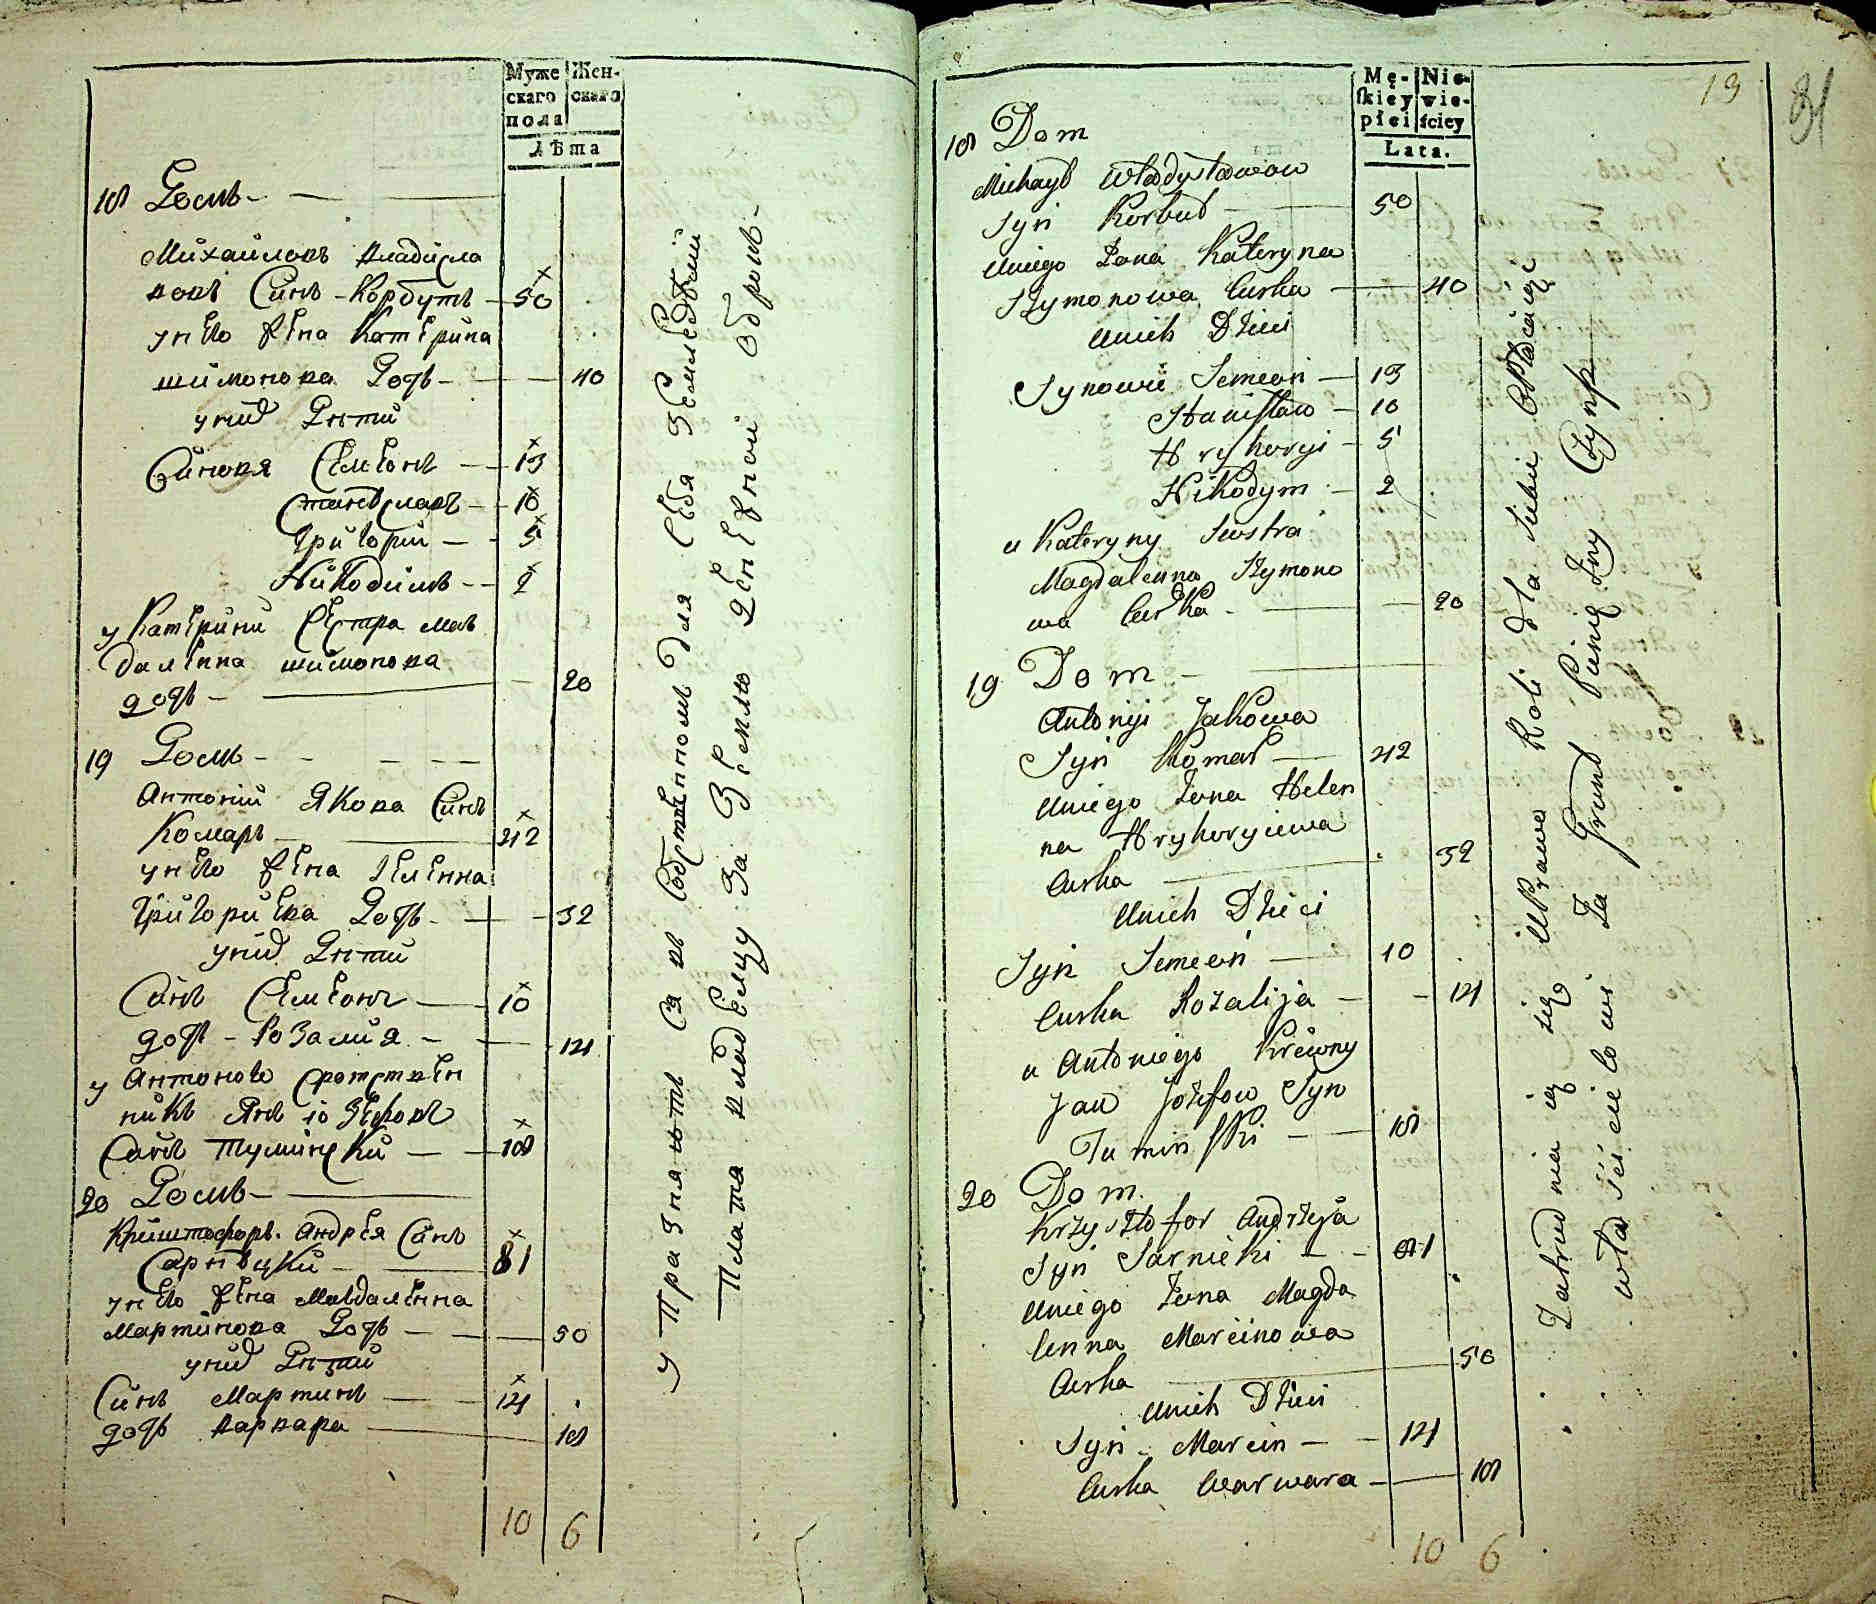 Муже
скаго
пола
Жен-
скаго
Лѣта
18 Домъ
Михаиловъ владисла
вовъ Синъ Корбутъ 50
у него жена Катерина
шимонова Дочь 40
у нихъ Дѣти
Синовя Семеонъ 13
Станиславъ 10
Григорий 5
Никодимъ 2
у Катерини Сестра Маг
далена шимонова
дочь 20
19 Домъ
Антоний Якова Синъ
Комаръ 42
у него жена Геленна
Григориева Дочь 32
у нихъ Дѣти
Синъ Семеонъ 10
дочь Розалия 14
у Антоного Сротствен
никъ Янъ іозефовъ
Синъ Туминский 18
20 Домъ
Криштофоръ Андрея Синъ
Сарнѣцки 81
у него жена Магдаленна
Мартинова Дочь 50
у нихъ Дѣти
Синъ Мартинъ 14
дочь варвара 18
10 6
Упражняють Ся въ Собственномъ для Себя Земледѣлии
Плата владелцу за Землю денежной оброкъ
Mę-
skiey
płci
Nie-
wie-
ściey
Lata.
13
31
18 Dom
Michaył Władysławow
Syn Korbut 50
u niego Żona Kateryna
Szymonowa Curka 40
u nich Dzieci
Synowie Semeon 13
Stanisław 10
Hryhoryi 5
Nikodym 2
u Kateryny Siostra
Magdalenna Szymono
wa Curka 20
19 Dom
Antonyi Jakowa
Syn Komar 42
u niego Żona Helen
na Hryhoryiewa
Curka 32
u nich Dzieci
Syn Semeon 10
Curka Rozalija 14
u Antoniego Krewny
Jan Jozefow Syn
Tuminski 18
20 Dom
Krzysztofor Andrzeja
Syn Sarnicki 81
u niego Żona Magda
lenna Marcinowa
Curka 50
u nich Dzieci
Syn Marcin 14
Curka Warwara 18
10 6
Zatrudniaią się uprawą Roli dla Siebie Opłacaiąc
właścicielowi Za Grunt Pieniężny Czynsz